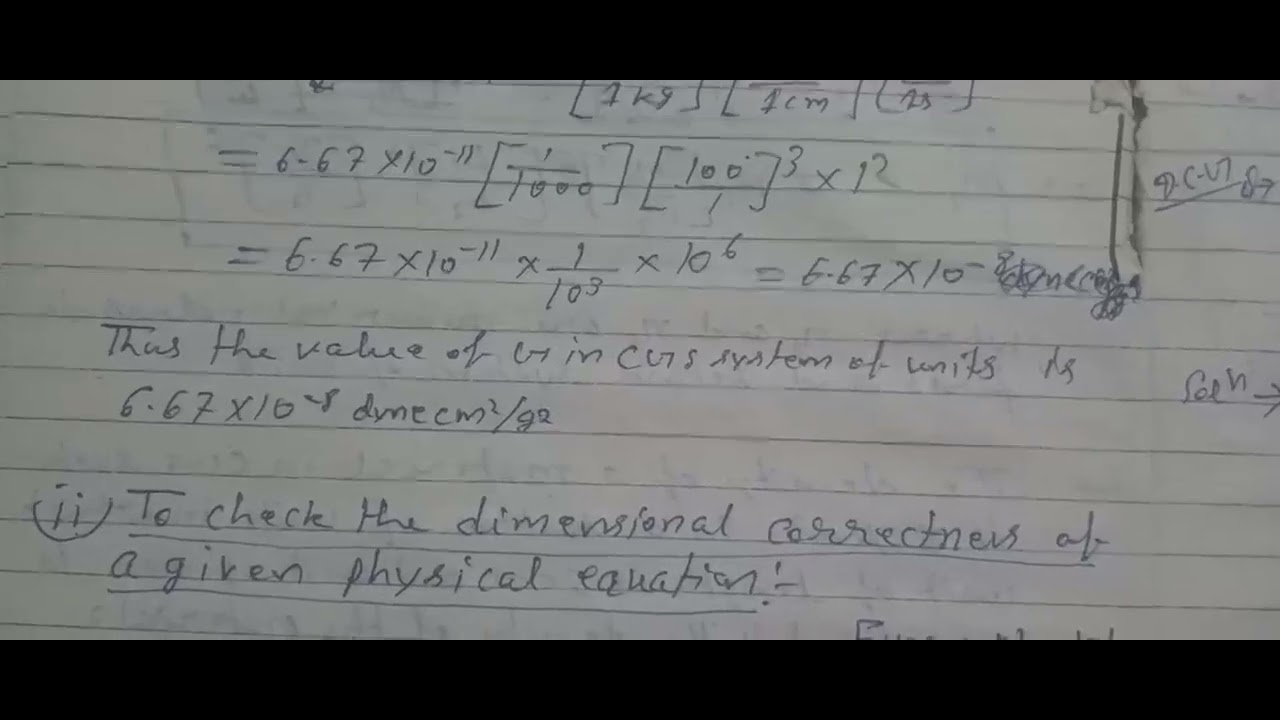 [1kg] [1cm] [1s]
= 6.67 × 10⁻¹¹ [1/1000] [100/1]³ × 1²
= 6.67 × 10⁻¹¹ × 1/10³ × 10⁶ = 6.67 × 10⁻⁸
Thus the value of G in CGS system of units is
6.67 × 10⁻⁸ dyne cm²/g2
Solⁿ →
(ii) To check the dimensional correctness of
a given physical equation:-